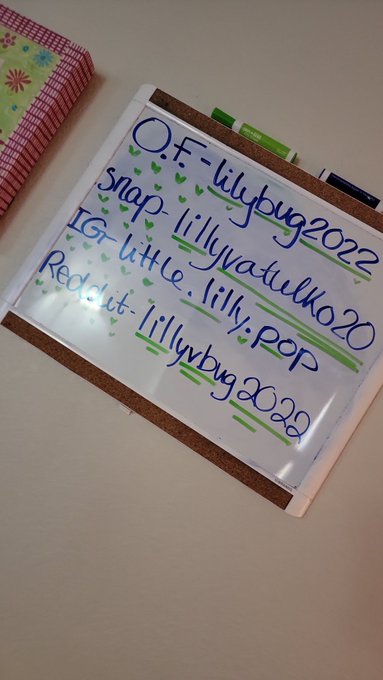 O.F.-lilybug2022
snap-lillyvatulko20
IG-little.lilly.pop
Reddit-lillyvbug2022